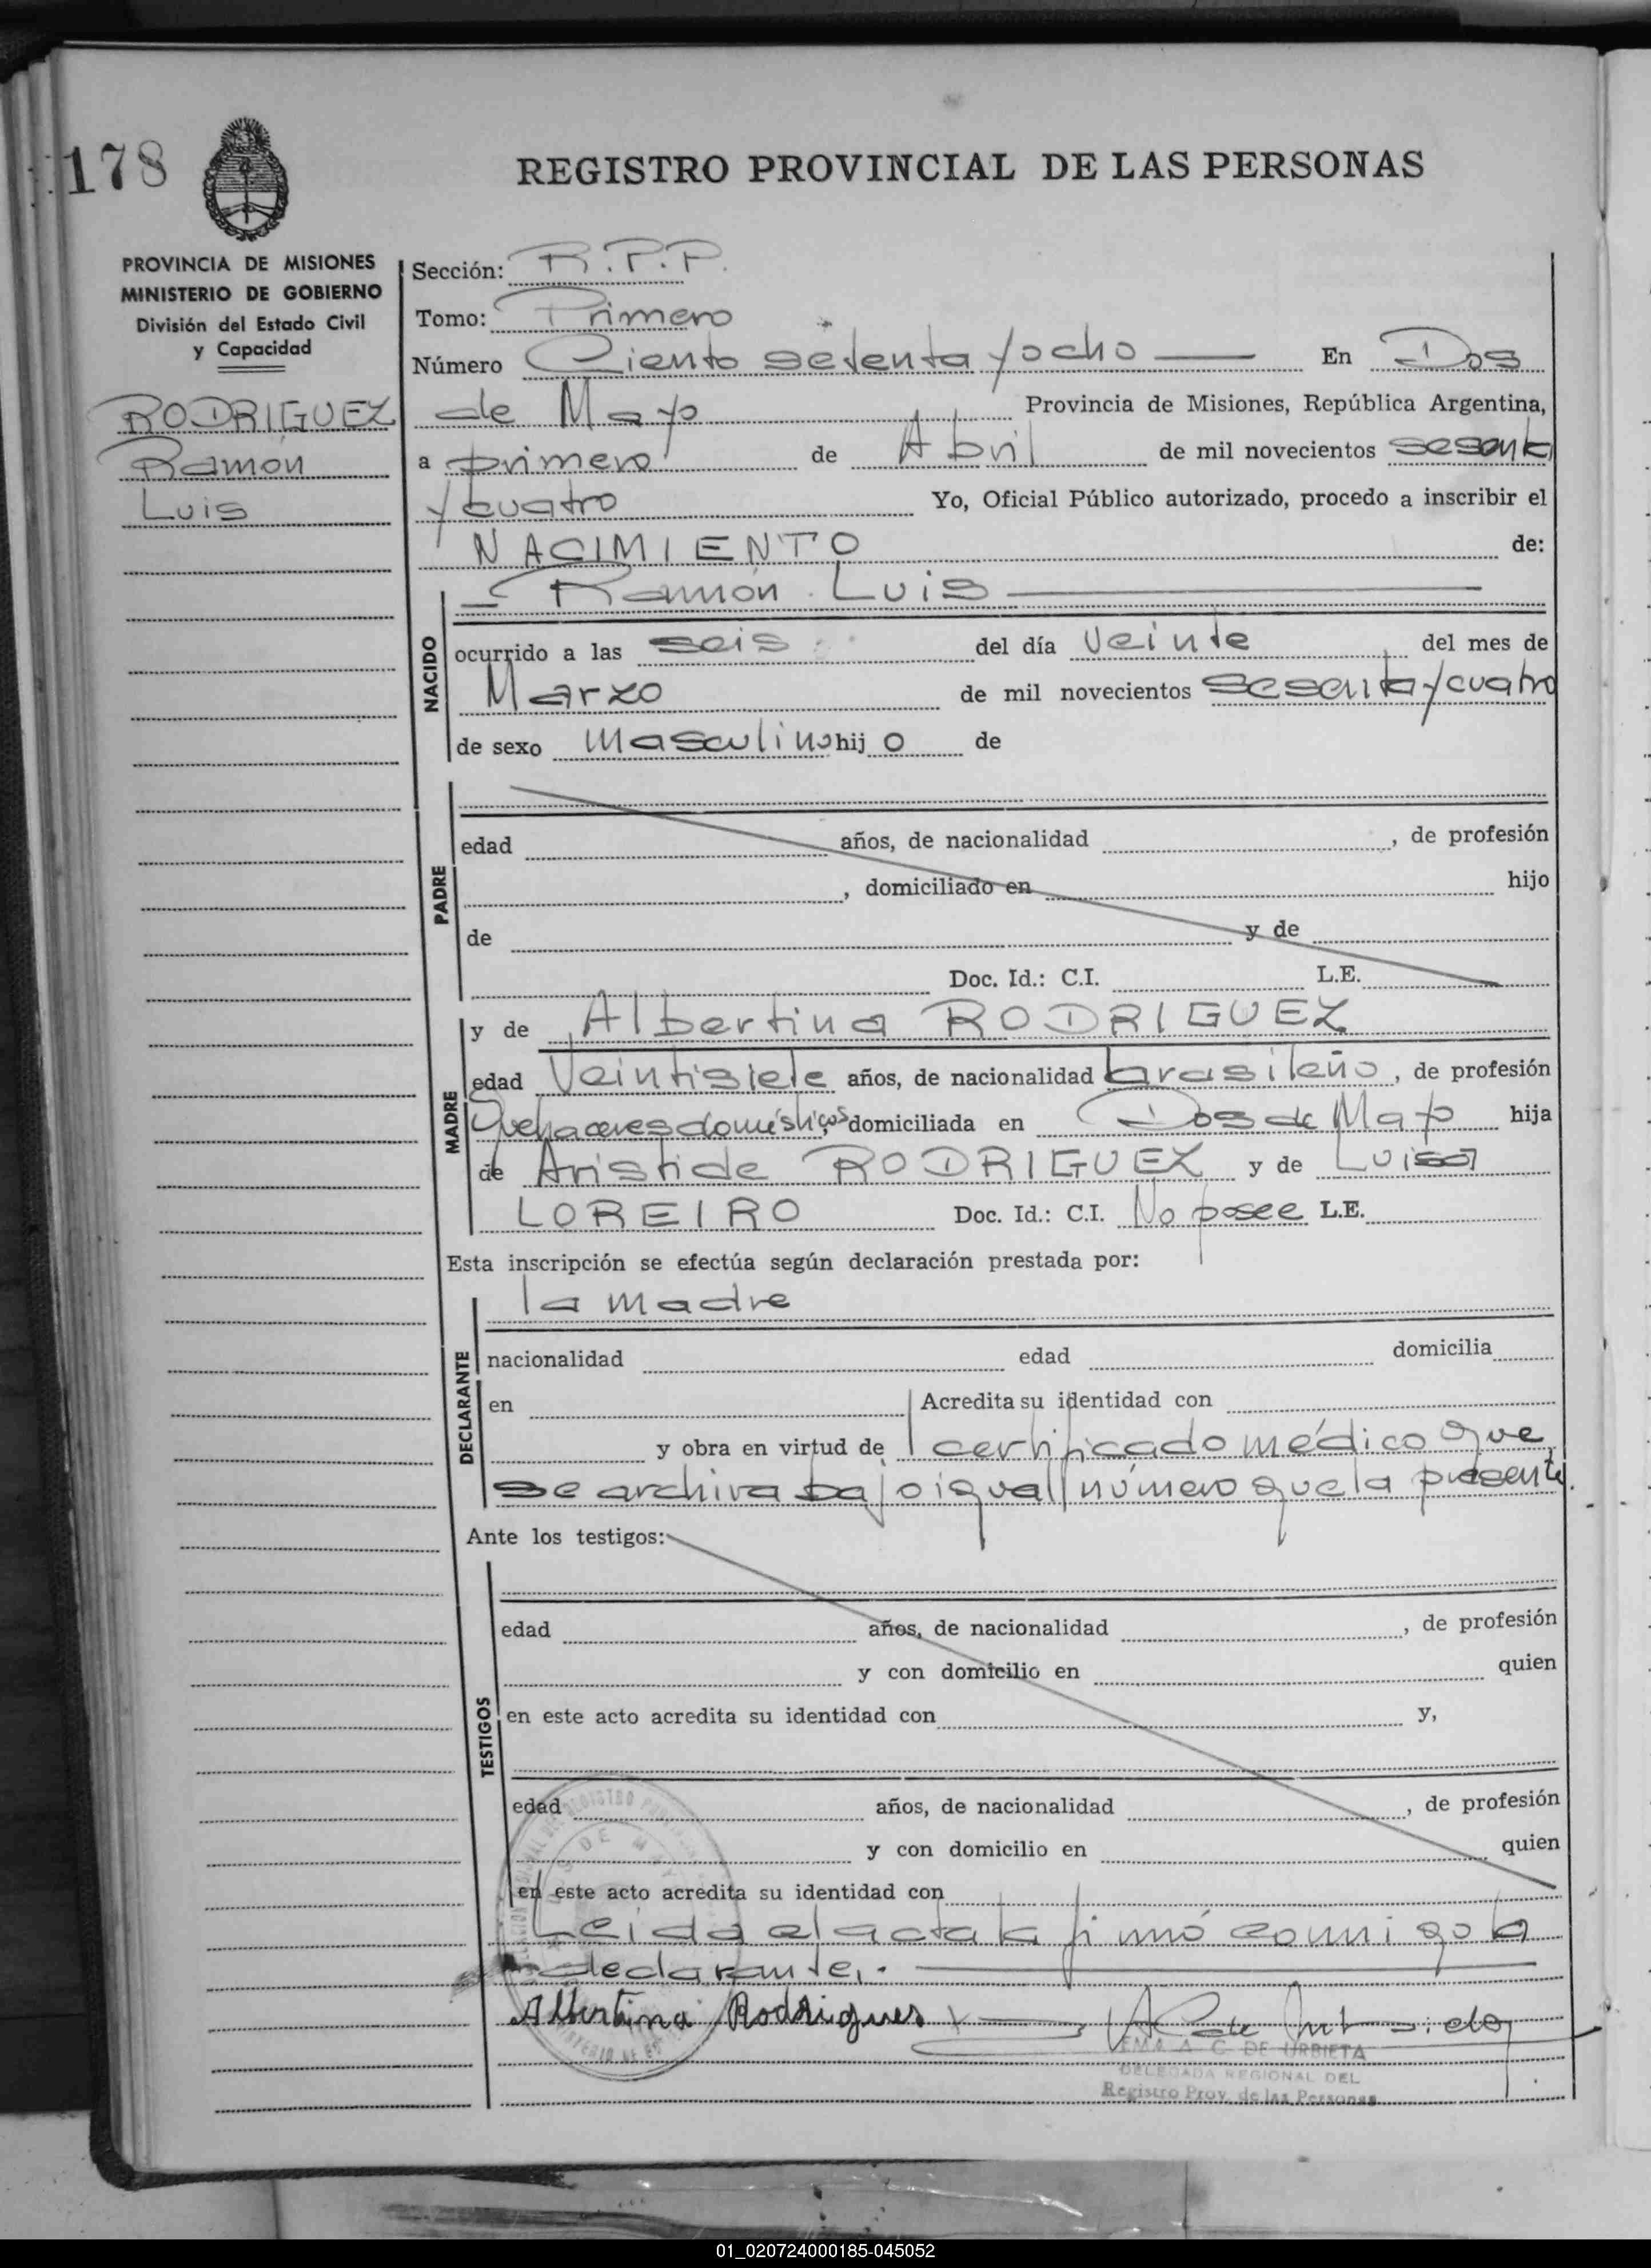 178
REGISTRO PROVINCIAL DE LAS PERSONAS
PROVINCIA DE MISIONES
MINISTERIO DE GOBIERNO
División del Estado Civil
y Capacidad
RODRIGUEZ
Ramón
Luis
Sección: R.P.P.
Tomo: Primero
Número Ciento setenta y ocho En Dos
de Mayo Provincia de Misiones, República Argentina,
a primero de Abril de mil novecientos sesenta
y cuatro Yo, Oficial Público autorizado, procedo a inscribir el
NACIMIENTO de:
Ramón Luis
NACIDO
ocurrido a las seis del día veinte del mes de
Marzo de mil novecientos sesenta y cuatro
de sexo masculino hijo de
PADRE
edad años, de nacionalidad , de profesión
, domiciliado en hijo
de y de
Doc. Id.: C.I. L.E.
MADRE
y de Albertina RODRIGUEZ
edad Veintisiete años, de nacionalidad brasileño, de profesión
Quehaceres domésticos domiciliada en Dos de Mayo hija
de Aristide RODRIGUEZ y de Luisa
LOREIRO Doc. Id.: C.I. No posee L.E.
Esta inscripción se efectúa según declaración prestada por:
la madre
DECLARANTE
nacionalidad edad domicilia
en Acredita su identidad con
y obra en virtud de certificado médico que
se archiva bajo igual número que la presente.
Ante los testigos:
TESTIGOS
edad años, de nacionalidad , de profesión
y con domicilio en quien
en este acto acredita su identidad con y,
edad años, de nacionalidad , de profesión
y con domicilio en quien
en este acto acredita su identidad con
Leída el acta la firmó conmigo la
declarante.
Albertina Rodrigues
EMA A C. DE URBIETA
DELEGADA REGIONAL DEL
Registro Prov. de las Personas
DOS DE MAYO
01_020724000185-045052